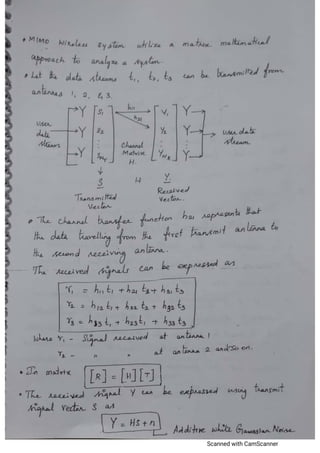 • MIMO wireless system utilize a matrix mathematical
approach to analyze a system.
• Let the data streams t1, t2, t3 can be transmitted from
antennas 1, 2, & 3.
User data stream
Y Y Y
S1 S2 : SNT
h11
h21
Channel Matrix H.
Y1 Y2 : YNR
Y Y Y
user data stream
S H Y
Transmitted Vector
Received Vector.
• The channel transfer function h21 represents that
the data travelling from the first transmit antenna to
the second receiving antenna.
The received signals can be expressed as
r1 = h11 t1 + h21 t2 + h31 t3
r2 = h12 t1 + h22 t2 + h32 t3
r3 = h13 t1 + h23 t2 + h33 t3
Where r1 - Signal received at antenna 1
r2 - " " at antenna 2 and so on.
• In matrix [R] = [H] [T]
• The received signal Y can be expressed using transmit
signal vector S as
Y = HS + n
Additive white Gaussian Noise
Scanned with CamScanner